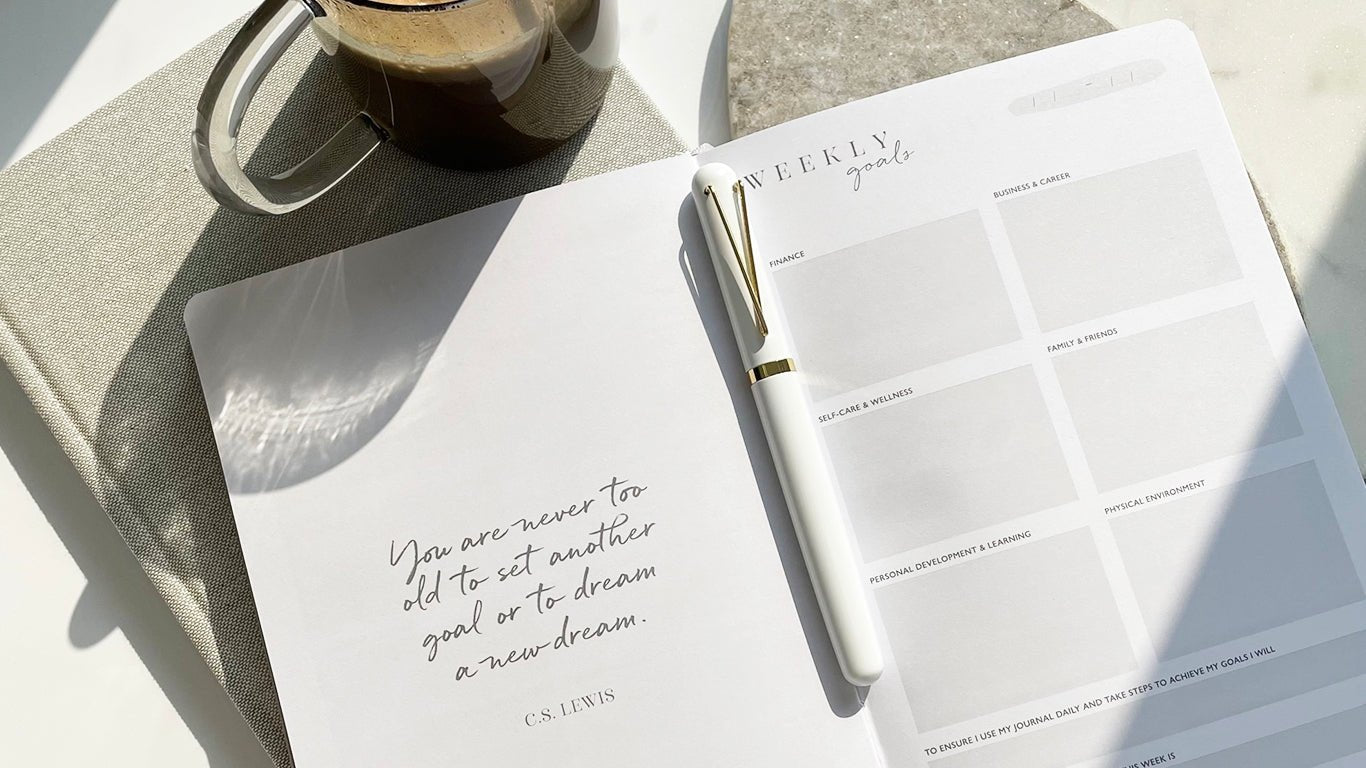 You are never too
old to set another
goal or to dream
a new dream.
C.S. LEWIS
WEEKLY
goals
FINANCE
BUSINESS & CAREER
SELF-CARE & WELLNESS
FAMILY & FRIENDS
PERSONAL DEVELOPMENT & LEARNING
PHYSICAL ENVIRONMENT
TO ENSURE I USE MY JOURNAL DAILY AND TAKE STEPS TO ACHIEVE MY GOALS I WILL
THIS WEEK IS